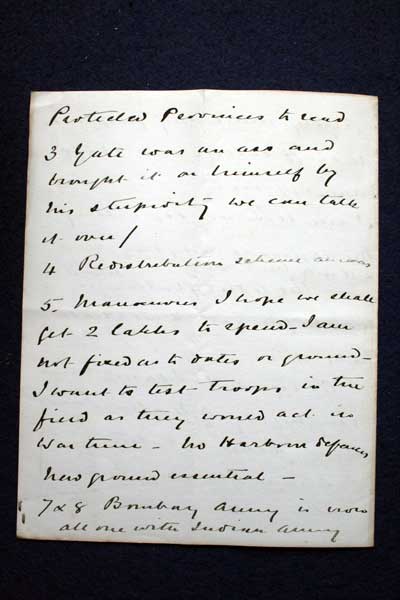 Protected Provinces to read
3 Yate was an ass and
brought it on himself by
his stupidity we can talk
it over/
4 Redistribution scheme
5. Manoeuvres I hope we shall
get 2 lakhs to spend - I am
not fixed as to dates or ground -
I want to test troops in the
field as they would act in
War time - no Harbour defences
New ground essential -
7 & 8 Bombay Army is now
all one with Indian Army